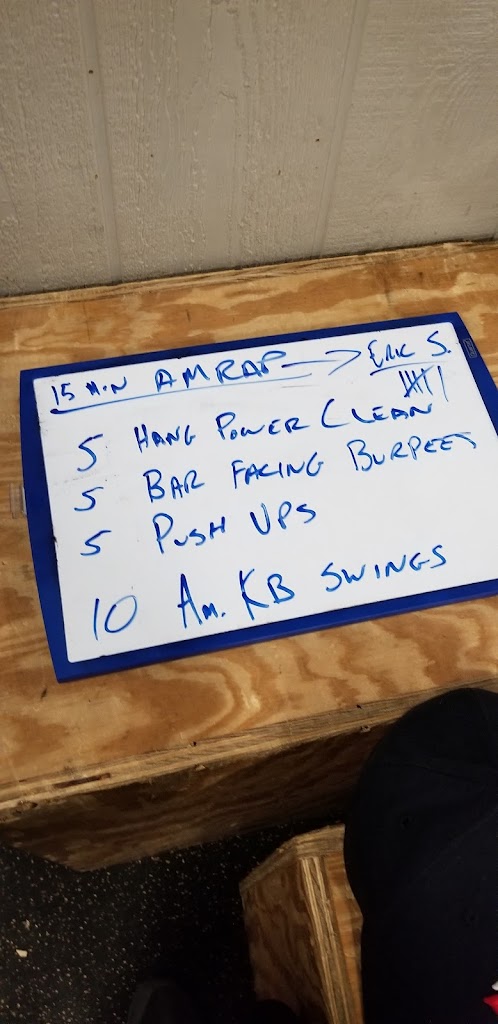 15 MIN AMRAP → ERIC S.
5 HANG POWER CLEAN
5 BAR FACING BURPEES
5 PUSH UPS
10 AM. KB SWINGS